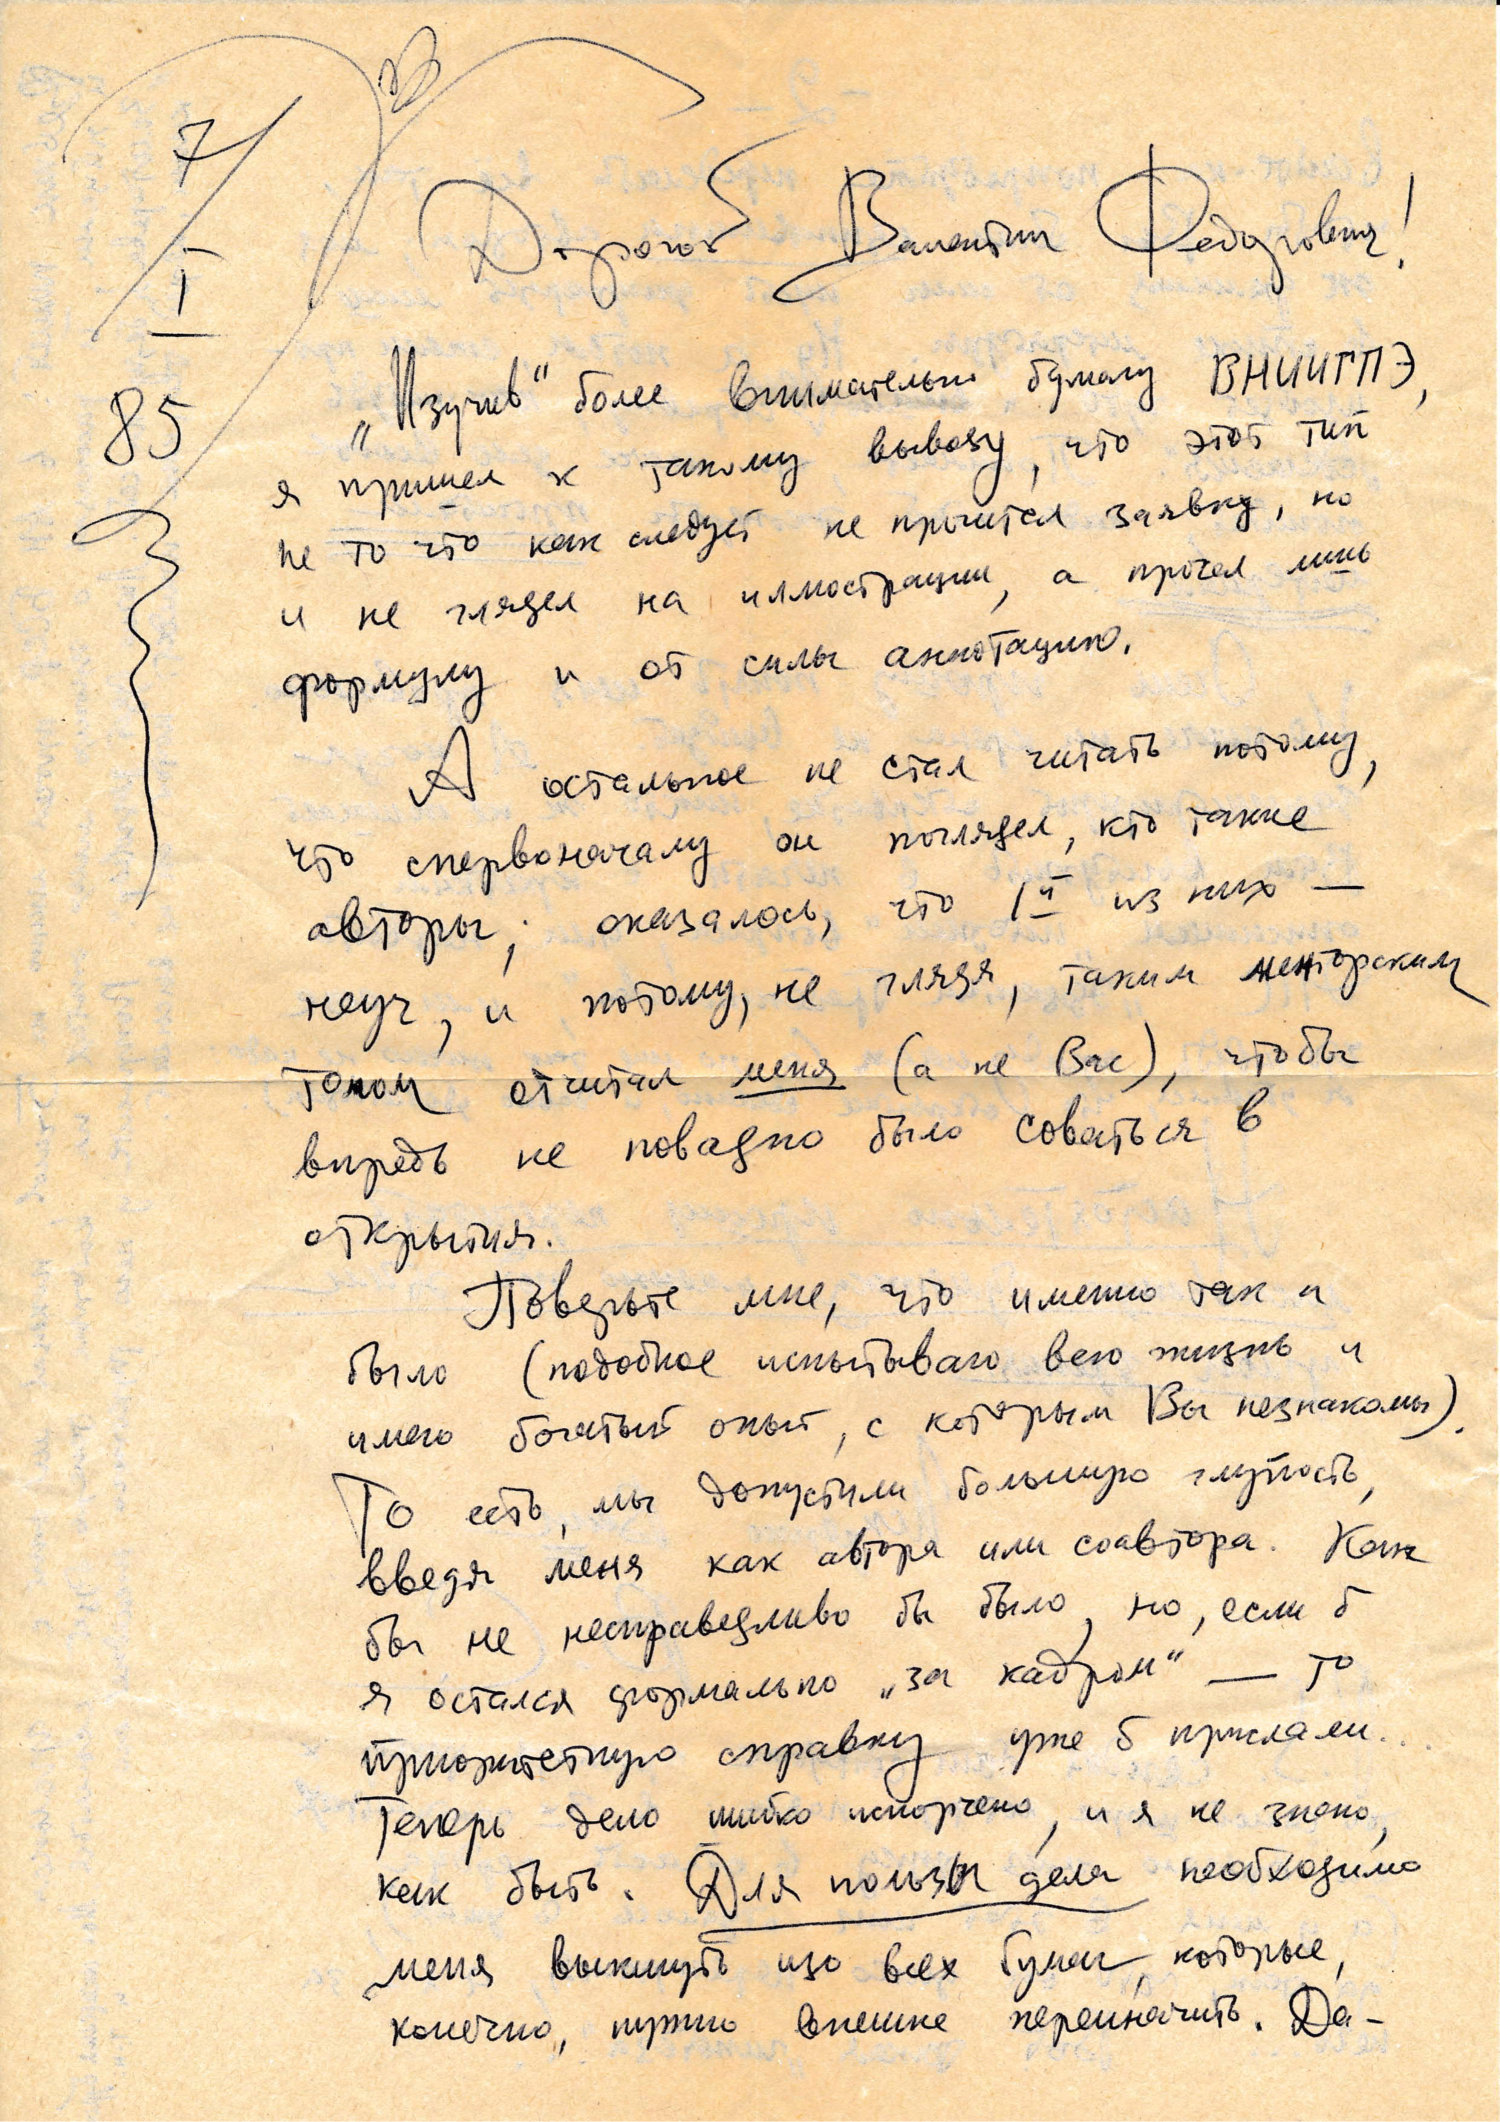 7
I
85
Дорогой Валентин Федорович!
„Изучив" более внимательно бумагу ВНИИГПЭ,
я пришел к такому выводу, что этот тип
не то что как следует не прочитал заявку, но
и не глядел на иллюстрации, а прочел лишь
формулу и от силы аннотацию.
А остальное не стал читать потому,
что сперво­началу он поглядел, кто такие
авторы; оказалось, что 1й из них —
неуч, и потому, не глядя, таким менторским
тоном отчитал меня (а не Вас), чтобы
впредь не повадно было соваться в
открытия.
Поверьте мне, что именно так и
было (подобное испытываю всю жизнь и
имею богатый опыт, с которым Вы незнакомы).
То есть, мы допустили большую глупость,
введя меня как автора или соавтора. Как
бы не несправедливо бы было, но, если б
я остался формально „за кадром" — то
приоритетную справку уже б прислали...
Теперь дело шибко испорчено, и я не знаю,
как быть. Для пользы дела необходимо
меня выкинуть изо всех бумаг, которые,
конечно, нужно внешне переиначить. Да-